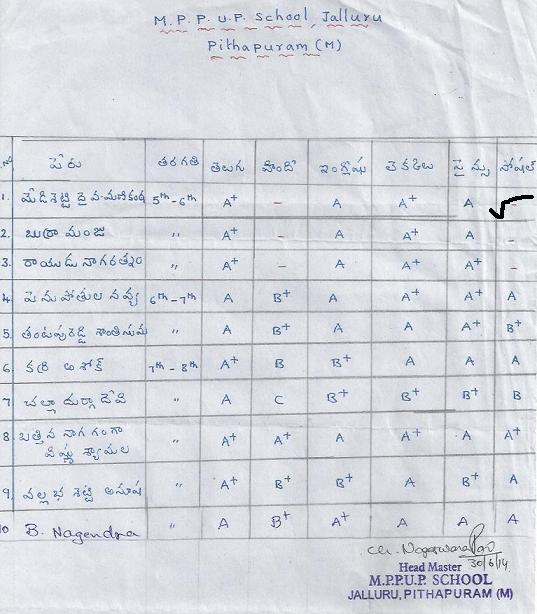 M.P.P. U.P. School, Jalluru
Pithapuram (M)
.నo పేరు తరగతి తెలుగు హిందీ ఇంగ్లీషు లెక్కలు సైన్సు సోషల్
1. మేడిశెట్టి దైవ మణికంఠ 5th - 6th A+ - A A+ A -
2. బుర్రా మంజు " A+ - A A+ A -
3. రాయుడు నాగరత్నం " A+ - A A+ A+ -
4. పెనుపోతుల నవ్య 6th - 7th A B+ A A+ A+ A
5. " A B+ A A A+ B+
6 కర్రి అశోక్ 7th - 8th A+ B B+ A A A
7 చల్లా దుర్గాదేవి " A C B+ B+ B+ B
8 బత్తిన నాగ గంగా " A+ A+ A A+ A A+
విష్ణు శ్యామల
9. వల్లభశెట్టి అనూష " A+ B+ B+ A B+ A
10 B. Nagendra " A B+ A+ A A A
Ch. Nageswara Rao
30/6/14
Head Master
M.P.P.U.P. SCHOOL
JALLURU, PITHAPURAM (M)